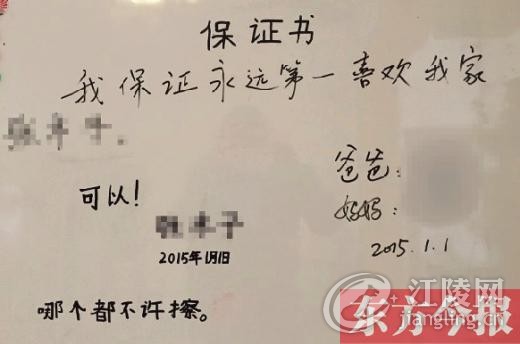 保证书
我保证永远第一喜欢我家
爸爸：
可以！
妈妈：
2015年1月1日
2015.1.1
哪个都不许擦。
江陵网
jiangling.cn
东方今报